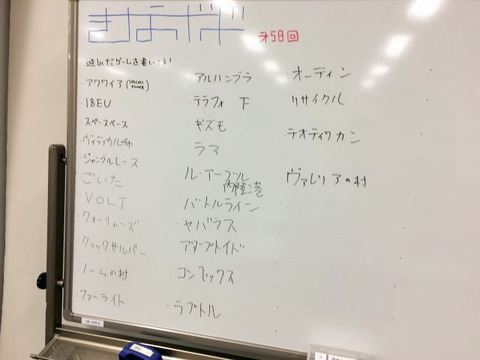 第58回
遊んだゲームを書いてって!
アクワイア(SPECIAL POWER)
18EU
スペースベース
ジャングルレース
ごいた
VOLT
クォーリャーズ
クイックサルバー
ノームの村
ファーライト
アルハンブラ
テラフォ 下
ギズモ
ラマ
ル・アーブル
内陸港
バトルライン
ヤバラス
アダプトイド
コンプレックス
ラプトル
オーディン
リサイクル
テオティワカン
ヴァレリアの村